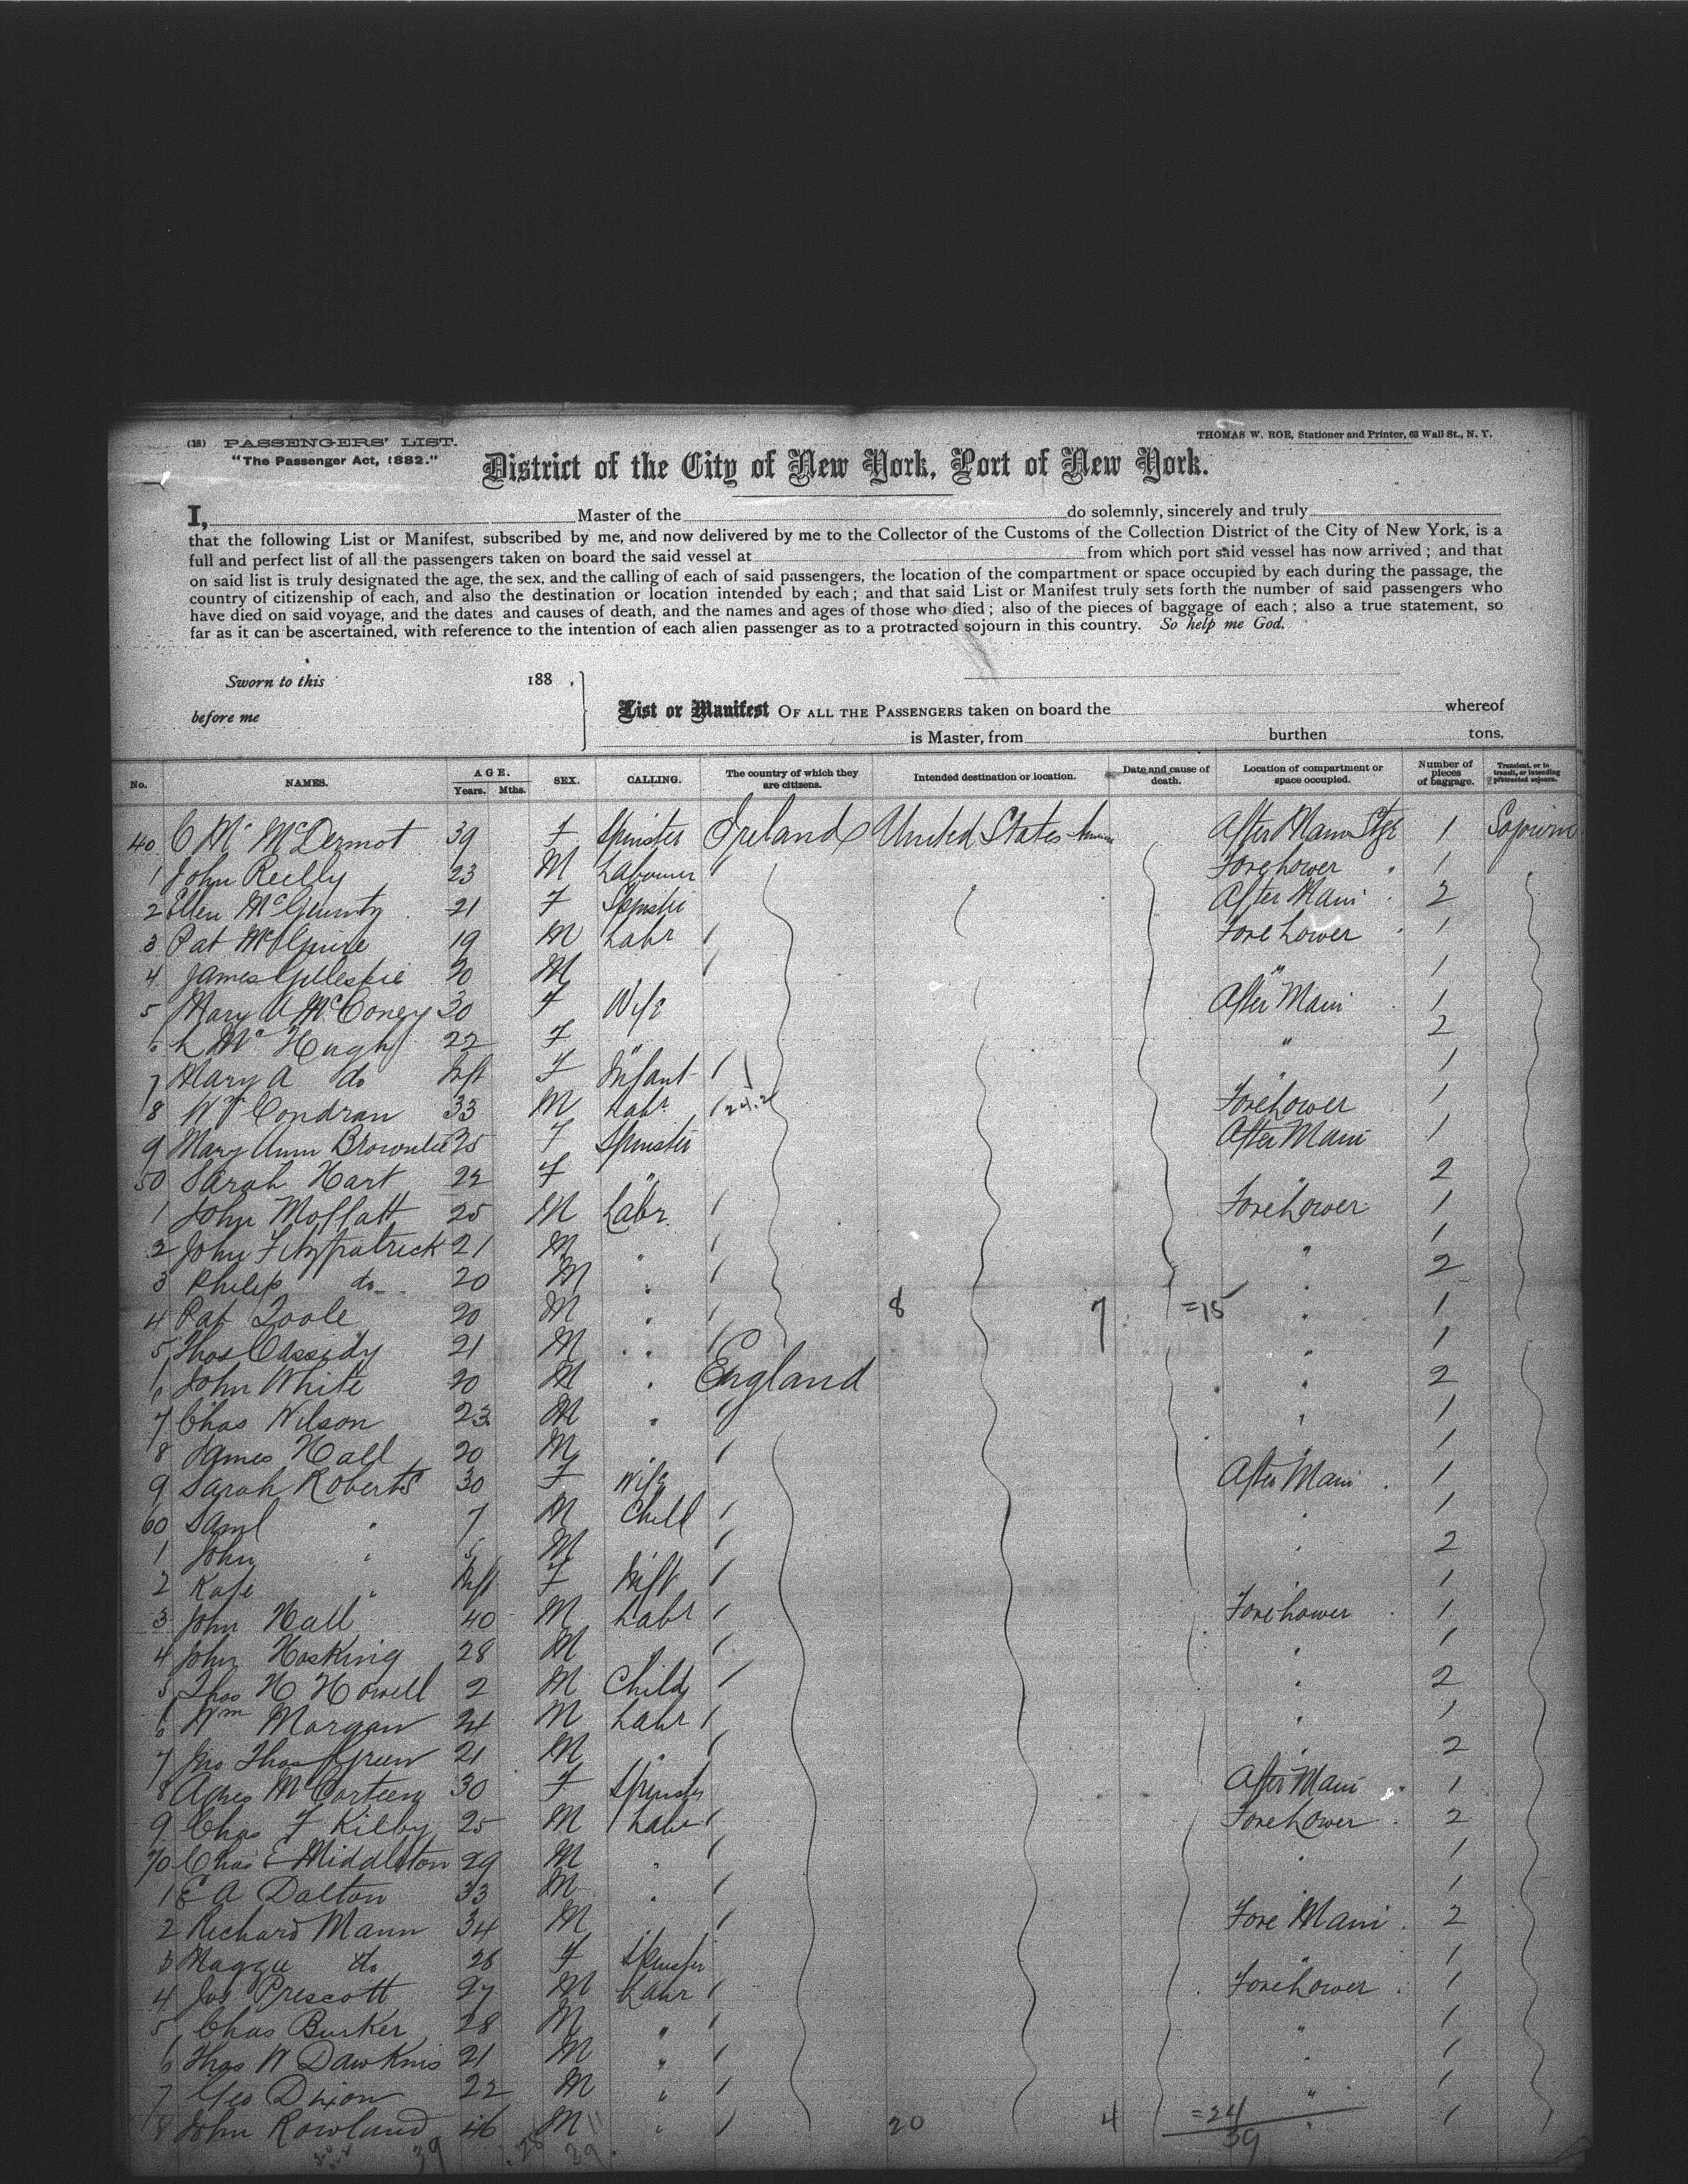 (18) PASSENGERS' LIST.
THOMAS W. ROE, Stationer and Printer, 63 Wall St., N. Y.
"The Passenger Act, 1882."
District of the City of New York, Port of New York.
I, Master of the do solemnly, sincerely and truly
that the following List or Manifest, subscribed by me, and now delivered by me to the Collector of the Customs of the Collection District of the City of New York, is a
full and perfect list of all the passengers taken on board the said vessel at from which port said vessel has now arrived; and that
on said list is truly designated the age, the sex, and the calling of each of said passengers, the location of the compartment or space occupied by each during the passage, the
country of citizenship of each, and also the destination or location intended by each; and that said List or Manifest truly sets forth the number of said passengers who
have died on said voyage, and the dates and causes of death, and the names and ages of those who died; also of the pieces of baggage of each; also a true statement, so
far as it can be ascertained, with reference to the intention of each alien passenger as to a protracted sojourn in this country. So help me God.
Sworn to this 188 .
before me
List or Manifest OF ALL THE PASSENGERS taken on board the whereof
is Master, from burthen tons.
No. NAMES. AGE. Years. Mths. SEX. CALLING. The country of which they are citizens. Intended destination or location. Date and cause of death. Location of compartment or space occupied. Number of pieces of baggage. Transient, or in transit, or intending protracted sojourn.
40 C Mc McDermot 39 F Spinster Ireland United States After Main Stge 1 Sojourn
1 John Reilly 23 M Labourer " Fore Lower 1
2 Ellen 21 F Spinster After Main 2
3 Pat McGuire 19 M Labr Fore Lower 1
4 James Gillespie 20 M " 1
5 Mary A McConey 30 F Wife After Main 1
6 L McHugh 22 F " " 2
7 Mary A do Inft F Infant " 1
8 Wm Condran 33 M Labr Fore Lower 1
9 Mary Ann Brownlee 25 F Spinster After Main 1
50 Sarah Hart 22 F " " 2
1 John Moffatt 25 M Labr Fore Lower 1
2 John Fitzpatrick 21 M " " 1
3 Philip do 20 M " " 2
4 Pat Toole 20 M " 8 7 =15 " 1
5 Thos Cassidy 21 M " " 1
6 John White 20 M " England " 2
7 Chas Wilson 23 M " " 1
8 James Hall 20 M " 1
9 Sarah Roberts 30 F Wife After Main 1
60 Saml " 7 M Child " 1
1 John " 5 M " 2
2 Kate " Inft F Inft " 1
3 John Hall 40 M Labr Fore Lower 1
4 John Hosking 28 M " 1
5 Thos H Howell 2 M Child " 2
6 Wm Morgan 24 M Labr " 1
7 Jno Thos Green 21 M " " 2
8 Agnes McCarteen 30 F Spinster After Main 1
9 Chas F Kilby 25 M Labr Fore Lower 2
70 Chas E Middleton 29 M " " 1
1 E A Dalton 33 M " " 1
2 Richard Mann 34 M Fore Main 2
3 Maggie do 28 F Spinster " 1
4 Jos Prescott 27 M Labr Fore Lower 1
5 Chas Burker 28 M " " 1
6 Thos W Dawkins 21 M " " 1
7 Geo Dixon 22 M " " 1
8 John Rowland 46 M " 20 4 =24 " 1
39
39 29